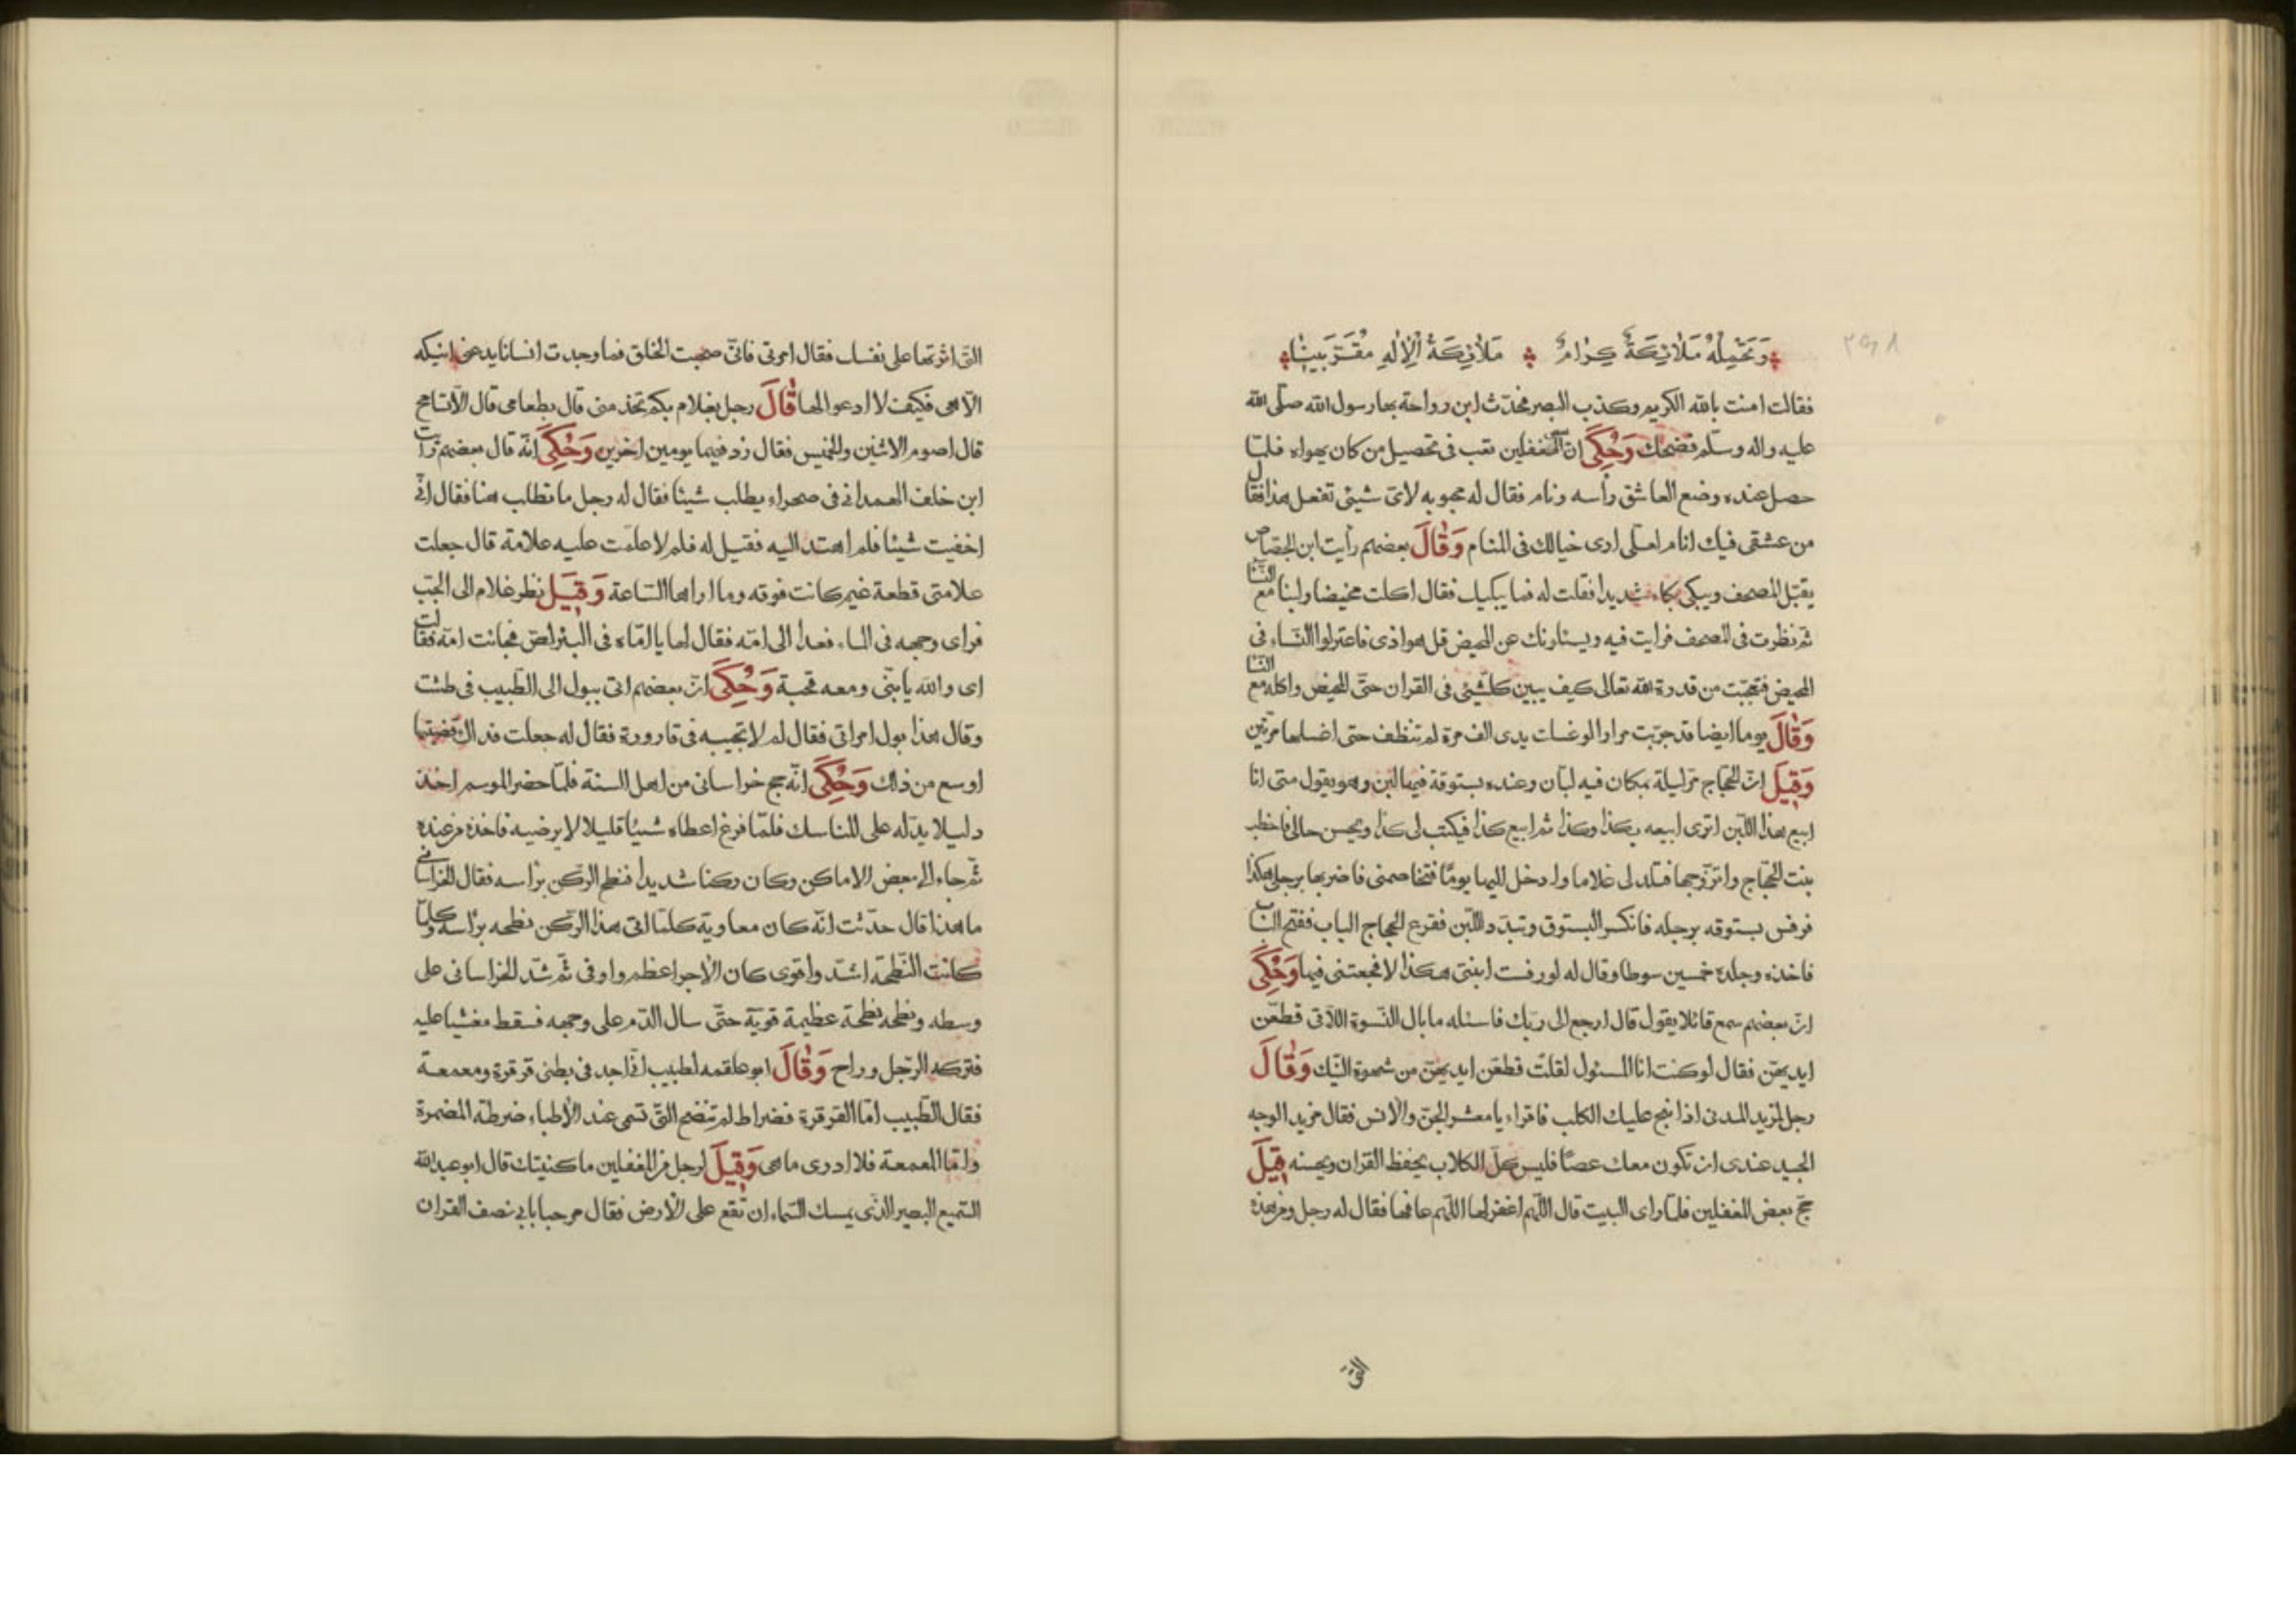 وَتَحْمِلُهُ مَلائِكَةٌ كِرامٌ مَلائِكَةُ الْإِلٰهِ مُقَرَّبِينا
فقالت امنت بالله الكريم وكذب البصر فحدّث ابن رواحة بها رسول الله صلّى الله
عليه واله وسلّم فضحك وَحُكِيَ انّ بعض المغفلين تعب فى تحصيل من كان يهواه فلمّا
حصل عنده وضع العاشق رأسه ونام فقال له محبوبه لاىّ شيئ تفعل هذا فقال
من عشقى فيك انام لعلّى ارى خيالك فى المنام وَقالَ بعضهم رأيت ابن الجصاص
يقبّل المصحف ويبكى بكاء شديدا فقلت له فما يبكيك فقال اكلت مخيضا ولبنا مع النسا
ثم نظرت فى المصحف فرايت فيه ويسئلونك عن المحيض قل هو اذى فاعتزلوا النّساء فى
المحيض فتعجّبت من قدرة الله تعالى كيف يبين كلّ شيئ فى القران حتّى المحيض واكله مع النسا
وَقالَ يوما ايضا قد جرّبت مرارا لو غسلت يدى الف مرة لم تنظف حتى اغسلها مرّتين
وَقِيلَ انّ الحجّاج مرّ ليلة بمكان فيه لبّان وعنده بستوقة فيها لبن وهو يقول متى انا
ابيع هذا اللبن اترى ابيعه بكذا وكذا ثم ابيع كذا فيكتب لى كذا ويحسن حالى فاخطب
بنت الحجّاج واتزوّجها فتلد لى غلاما وادخل اليها يومًا فتخاصمنى فاضربها برجلى هكذا
فرفس بستوقه برجله فانكسر البستوق وتبدّد اللبن فقرع الحجاج الباب ففتح الباب
فاخذه وجلده خمسين سوطا وقال له لو رفست ابنتى هكذا لا فجعتنى فيها وَحُكِيَ
انّ بعضهم سمع قائلا يقول قال ارجع الى ربّك فاسئله ما بال النّسوة اللّاتى قطّعن
ايديهنّ فقال لو كنت انا المسئول لقلت قطّعن ايديهنّ من شهوة النّيك وَقالَ
رجل لمزيد المدنى اذا نبح عليك الكلب فاقراء يا معشر الجنّ والانس فقال مزيد الوجه
الجيد عندى ان تكون معك عصًا فليس كلّ الكلاب يحفظ القران ويحسنه قِيلَ
حجّ بعض المغفلين فلمّا راى البيت قال اللّهم اغفر لها اللّهم عافها فقال له رجل ومن هذه
التى
الّتى اثرتها على نفسك فقال امرتى فانّى صحبت الخلق فما وجدت انسانا يدعنى انيكه
الّا هى فكيف لا ادعو لها قالَ رجل بغلام بكم تخدمنى قال بطعامى قال الا تسامح
قال اصوم الاثنين والخميس فقال زد فيهما يومين اخرين وَحُكِيَ انّه قال بعضهم رايت
ابن خلف الهمدانى فى صحراء يطلب شيئا فقال له رجل ما تطلب هنا فقال انّى
اخفيت شيئا فلم اهتد اليه فقيل له فلم لا علّمت عليه علامة قال جعلت
علامتى قطعة غيم كانت فوقه وما اراها السّاعة وَقِيلَ نظر غلام الى الجبّ
فراى وجهه فى الماء فعدا الى امّه فقال لها يا امّاه فى البئر لصّ فجائت امّه فقالت
اى والله يا بنّى ومعه قحبة وَحُكِيَ انّ بعضهم اتى ببول الى الطّبيب فى طشت
وقال هذا بول امراتى فقال لم لا تجيبه فى قارورة فقال له جعلت فداك قضيتها
اوسع من ذلك وَحُكِيَ انّه حج خراسانى من اهل السنة فلمّا حضر الموسم اخذ
دليلا يدّله على المناسك فلمّا فرغ اعطاه شيئا قليلا لا يرضيه فاخذه من عنده
ثمّ جاء الى بعض الاماكن وكان ركنا شديدا فنطح الرّكن براسه فقال الخراسانى
ما هذا قال حدّثت انّه كان معاوية كلّما اتى هذا الرّكن نطحه براسه وكلّما
كانت النّطحة اشدّ واقوى كان الاجر اعظم واوفى ثمّ شدّ الخراسانى على
وسطه ونطحه نطحة عظيمة قويّة حتّى سال الدّم على وجهه فسقط مغشيا عليه
فتركه الرّجل وراح وَقالَ ابو علقمه لطبيب انّى اجد فى بطنى قرقرة ومعمعة
فقال الطّبيب امّا القرقرة فضراط لم تنضج الّتى تسمى عند الأطباء ضرطة المضمرة
وامّا المعمعة فلا ادرى ما هى وَقِيلَ لرجل من المغفلين ما كنيتك قال ابو عبد الله
السّميع البصير الّذى يمسك السّماء ان تقع على الأرض فقال مرحبا بابى نصف القران